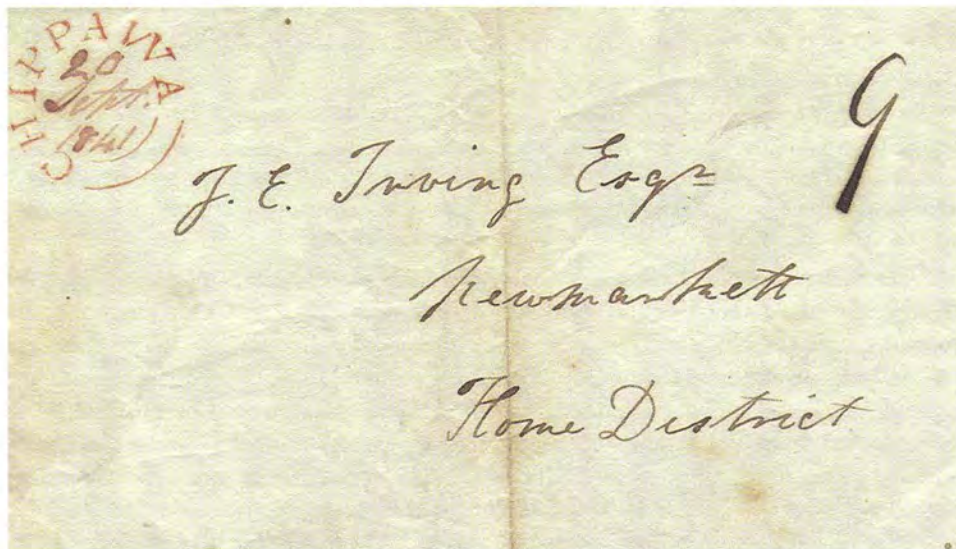 CHIPPAWA
20
Sept.
1841
9
J. E. Irving Esqr
Newmarkett
Home District